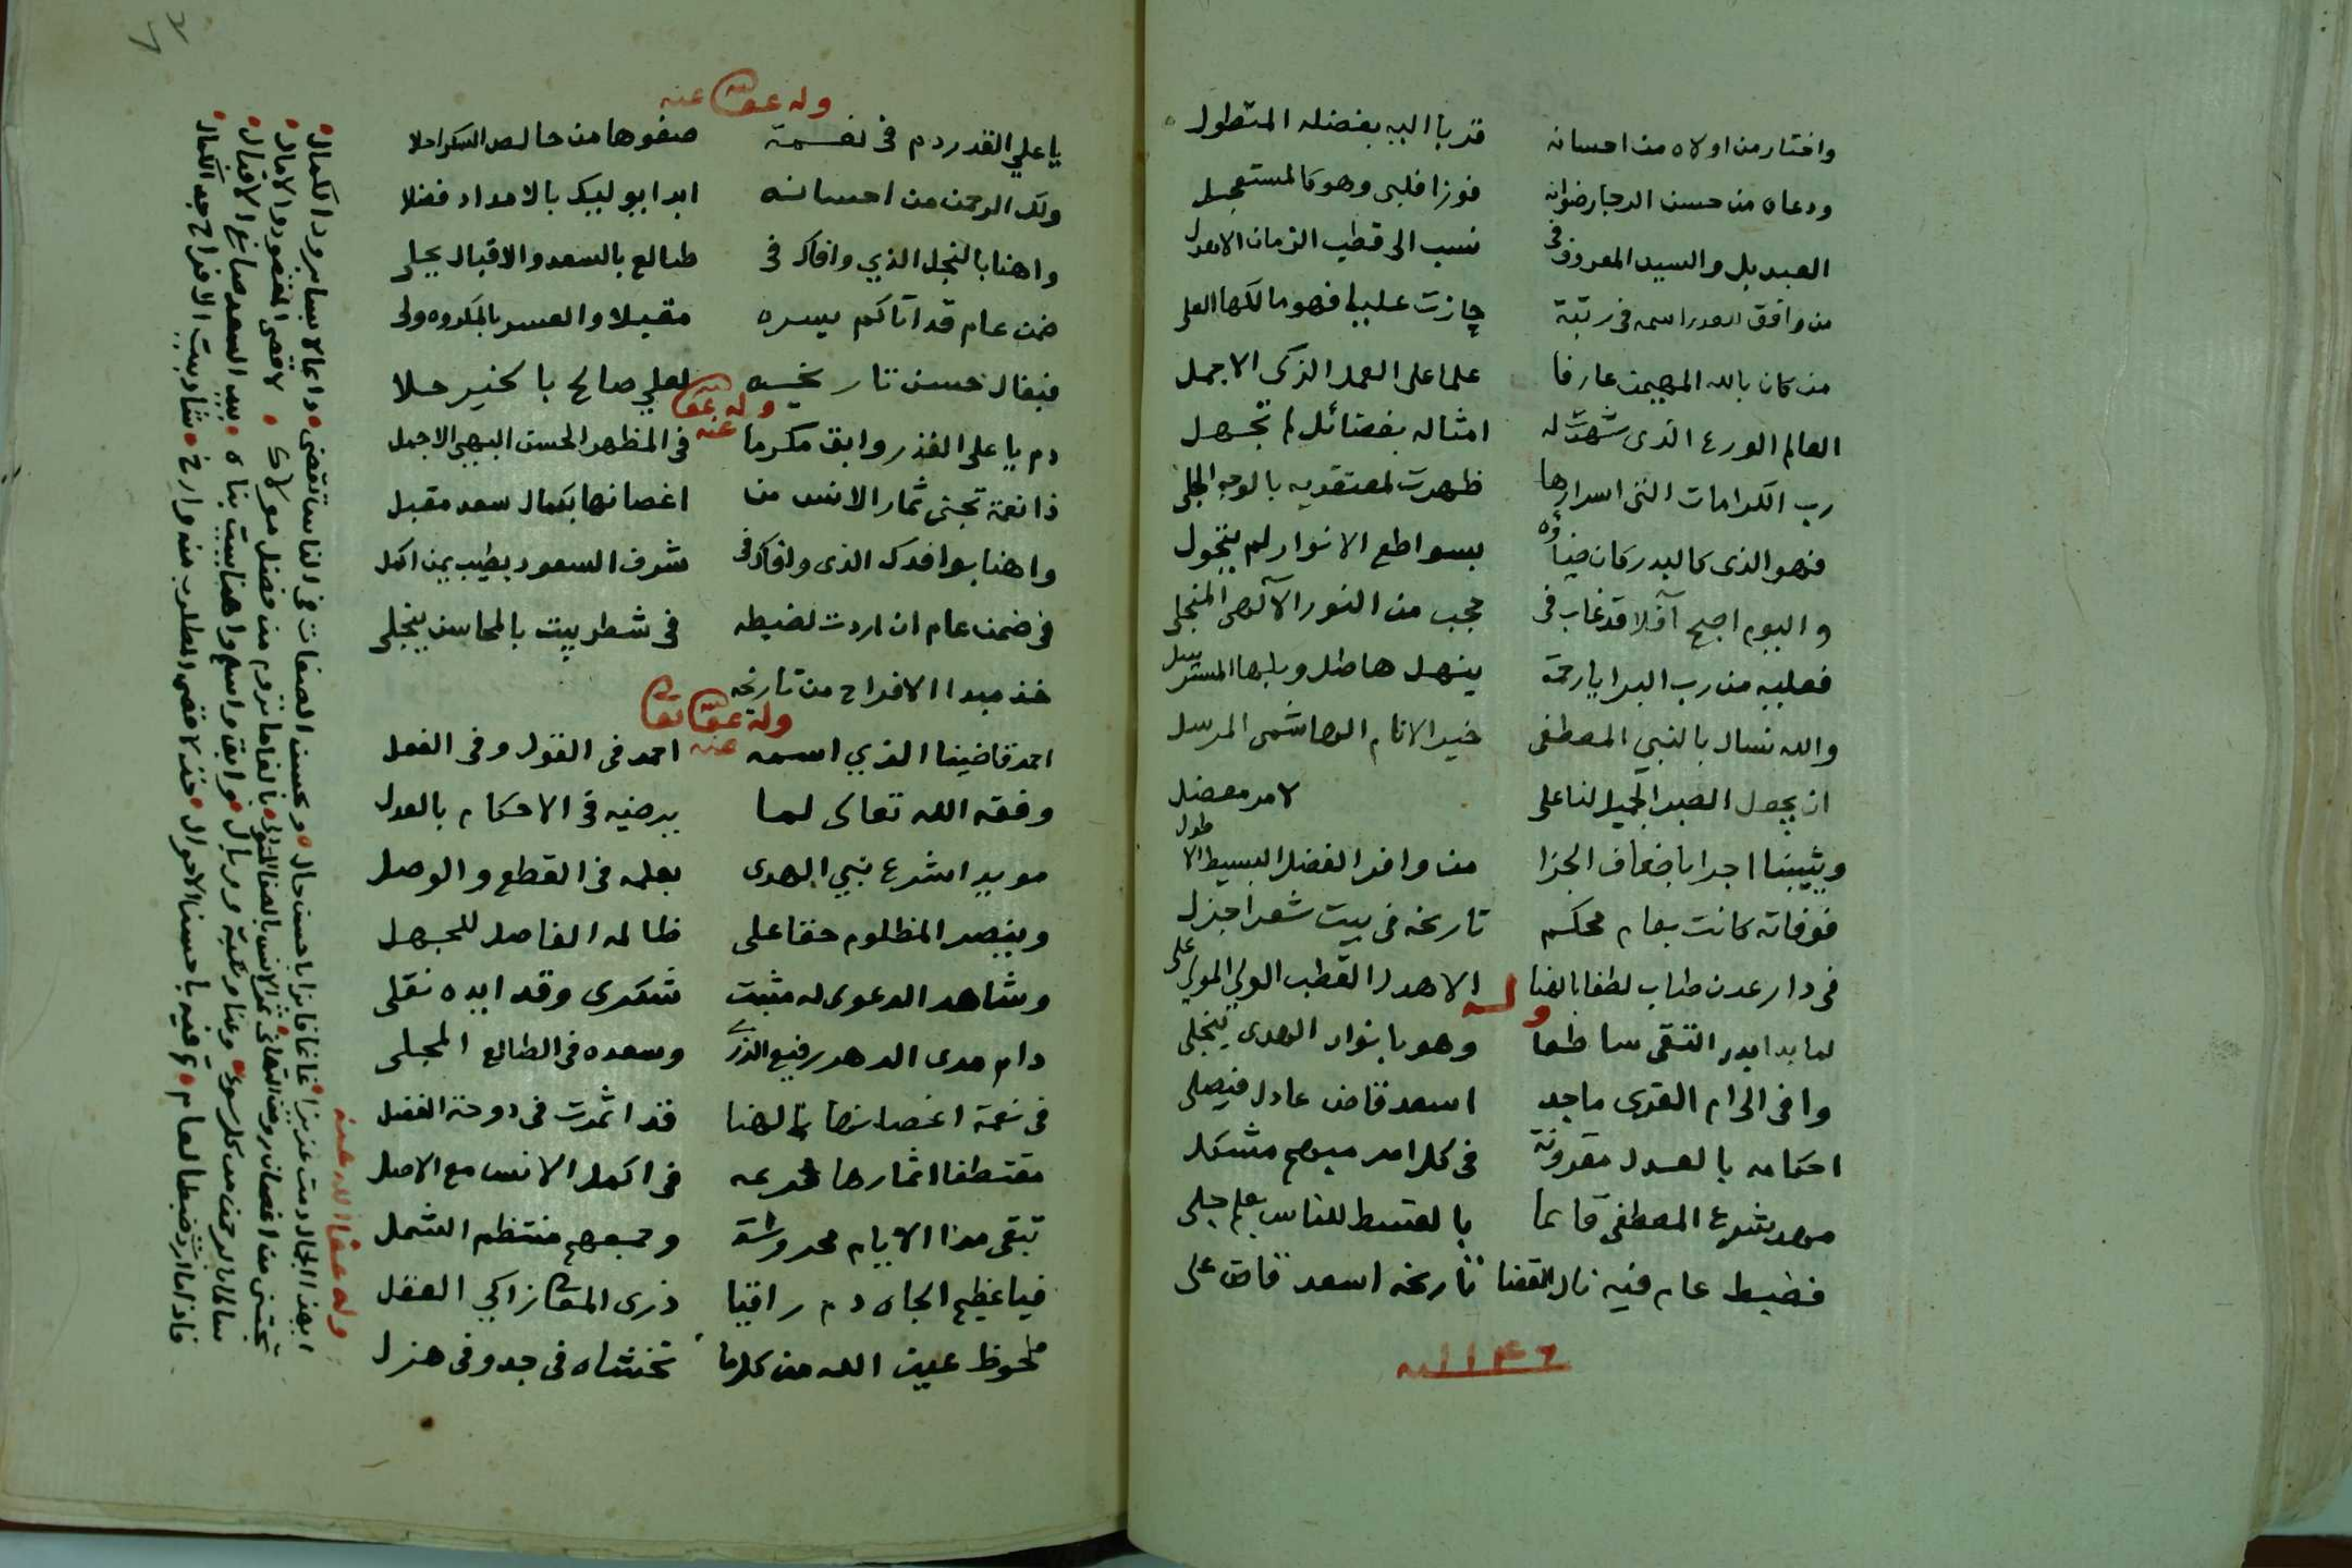 واختار من اولاه من احسانه قربا اليه بفضله المتطول
ودعاه من حسن الرجا رضوانه فوزا فلبى وهو كالمستعجل
العبد بل والسيد المعروف فى نسب الى قطب الزمان الاهدل
من وافق اسمه فى رتبة حازت فهو مالكها العلى
من كان بالله المهيمن عارفا علما على العمل الزكى الاجمل
العالم الورع الذى شهدت له امثاله بفضائل لم تجهل
رب الكرامات التى اسرارها ظهرت لمعتقديه بالوجه الجلى
فهو الذى كالبدر كان ضياؤه بسواطع الانوار لم يتحول
واليوم اصبح آفلا قد غاب فى حجب من النور الآلهى المنجلى
فعليه من رب البرايا رحمة ينهل هاطل وبلها المسترسل
والله نسال بالنبي المصطفى خير الانام الهاشمى المرسل
ان يجعل الصبر الجميل لنا على لامر معضل
ويثيبنا اجرا باضعاف الجزا من وافر الفضل البسيط الاطول
فوفاته كانت بعام محكم تاريخه فى بيت شعر اجزل
فى دار عدن طاب لطفا بالهنا الاهدل القطب الولي المولى على
وله
لما بدا بدر التقى ساطعا وهو بانوار الهدى ينجلى
وافى الى ام القرى ماجد اسعد قاض عادل فيصلى
احكامه بالعدل مقرونة فى كل امر مبهم مشكل
بشرع المصطفى قائما بالقسط للناس بعلم جلى
فضبط عام فيه نال القضا تاريخه اسعد قاض على
سنة ١٢٤٦
وله عفى عنه
يا علي القدر دم فى نعمة صفوها من خالص السكر احلا
ولك الرحمن من احسانه ابدا يوليك بالامداد فضلا
واهنا بالنجل الذي وافاك فى طالع بالسعد والاقبال يجلى
ضمن عام قد اتاكم يسره مقبلا والعسر بالمكروه ولى
فبفال حسن تاريخه لعلي صالح بالخير حلا
وله عفى عنه
دم يا على القدر وابق مكرما فى المظهر الحسن البهي الاجمل
ذا نعمة تجنى ثمار الانس من اغصانها بكمال سعد مقبل
واهنا بوافدك الذى وافاك فى شرف السعود بطيب يمن اكمل
فى ضمن عام ان اردت لضبطه فى شطر بيت بالمحاسن ينجلى
خذ مبدا الافراح من تاريخه
وله عفى عنه
احمد قاضينا الذي اسمه احمد فى القول وفى الفعل
وفقه الله تعالى لما يرضيه فى الاحكام بالعدل
مويدا شرع نبي الهدى بعلمه فى القطع والوصل
وينصر المظلوم حقا على ظالمه الفاصل للجهل
وشاهد الدعوى له مثبت شكرى وقد ايده نقلى
دام مدى الدهر رفيع الذرى وسعده فى الطالع المجلى
فى نعمة اغصانها بالهنا قد اثمرت فى دوحة الفضل
مقتطفا اثمارها فى اكمل الانس مع الاصل
تبقى مدا الايام محروسة وجمعهم منتظم الشمل
فيا عظيم الجاه دم راقيا ذرى زاكي العقل
ملحوظ عين الله من كل ما تخشاه فى جد وفى هزل
وله عفا الله عنه
دمت عزيزا غانما فائزا باحسن حال وبحسن الصفات فى الناس
تجتنى من اغصان روض التهانى ثمر الانس من فضل مولاك لاقصى المقصود والامال
سالما بالرحمن من كل سوء وابق واسلم واهنا ببيت بناه بيد السعد صانع الاقبال
فاذا ما اردت ضبطا لعام تم فيه باحسن الاحوال خذ لاقصى المطلوب منه وارخ شاد بيت الافراح جد الكمال